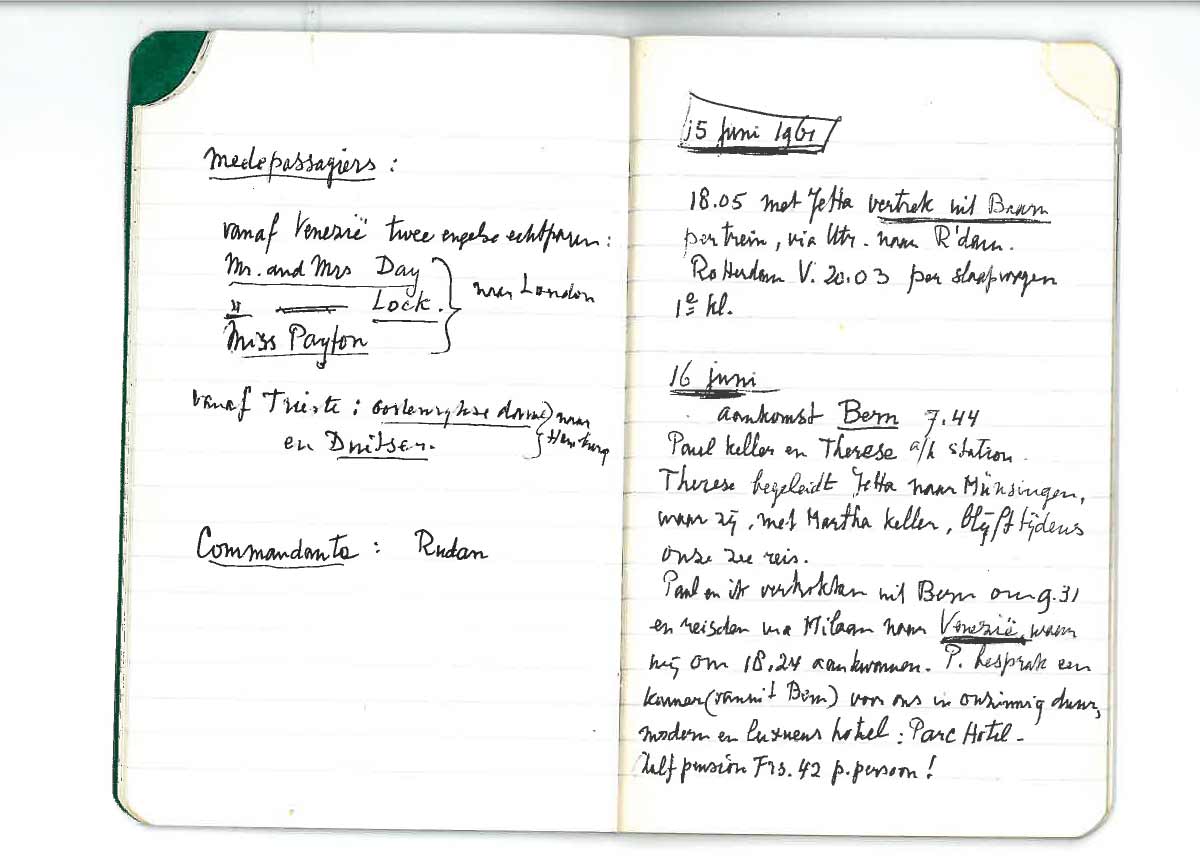 Medepassagiers :
vanaf Venezië twee engelse echtparen :
Mr. and Mrs Day
" —— Lock.
Miss Payton
naar London
vanaf Trieste : oostenrijkse dame
en Duitser.
naar
Hamburg
Commandante : Rudan
15 juni 1961
18.05 met Jetta vertrek uit Baarn
per trein, via Utr. naar R'dam.
Rotterdam V. 20.03 per slaapwagen
1e kl.
16 juni
aankomst Bern 7.44
Paul Keller en Therese a/h station.
Therese begeleidt Jetta naar Münsingen,
waar zij, met Martha Keller, blijft tijdens
onze zee reis.
Paul en ik vertrokken uit Bern om 9.31
en reisden via Milaan naar Venezië, waar
wij om 18.24 aankwamen. P. besprak een
kamer (vanuit Bern) voor ons in onzinnig duur,
modern en luxueus hotel : Parc Hotel -
Half pension Frs. 42 p. persoon !